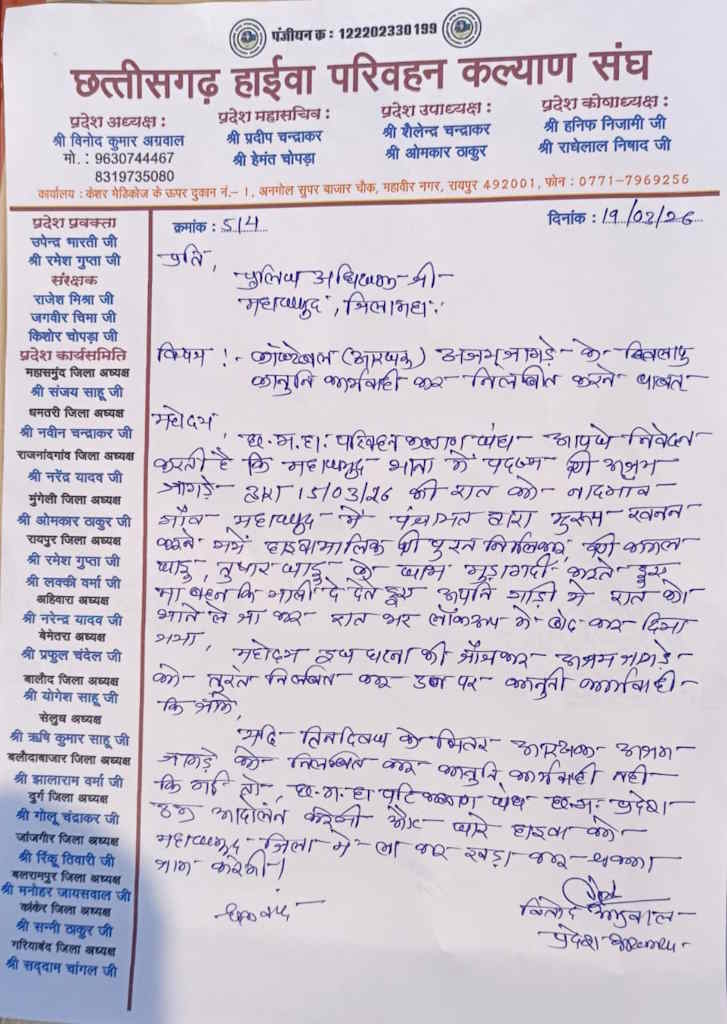 पंजीयन क्र : 122202330199
छत्तीसगढ़ हाईवा परिवहन कल्याण संघ
प्रदेश अध्यक्ष :
श्री विनोद कुमार अग्रवाल
मो. : 9630744467
8319735080
प्रदेश महासचिव :
श्री प्रदीप चन्द्राकर
श्री हेमंत चोपड़ा
प्रदेश उपाध्यक्ष :
श्री शैलेन्द्र चन्द्राकर
श्री ओमकार ठाकुर
प्रदेश कोषाध्यक्ष :
श्री हनिफ निजामी जी
श्री राधेलाल निषाद जी
कार्यालय : केशर मेडिकोज के ऊपर दुकान नं.– 1, अनमोल सुपर बाजार चौक, महावीर नगर, रायपुर 492001, फोन : 0771-7969256
प्रदेश प्रवक्ता
उपेन्द्र भारती जी
श्री रमेश गुप्ता जी
संरक्षक
राजेश मिश्रा जी
जगवीर चिमा जी
किशोर चोपड़ा जी
प्रदेश कार्यसमिति
महासमुंद जिला अध्यक्ष
श्री संजय साहू जी
धमतरी जिला अध्यक्ष
श्री नवीन चन्द्राकर जी
राजनांदगांव जिला अध्यक्ष
श्री नरेंद्र यादव जी
मुंगेली जिला अध्यक्ष
श्री ओमकार ठाकुर जी
रायपुर जिला अध्यक्ष
श्री रमेश गुप्ता जी
श्री लक्की वर्मा जी
अहिवारा अध्यक्ष
श्री नरेन्द्र यादव जी
बेमेतरा अध्यक्ष
श्री प्रफुल चंदेल जी
बालौद जिला अध्यक्ष
श्री योगेश साहू जी
सेलुध अध्यक्ष
श्री ऋषि कुमार साहू जी
बलौदाबाजार जिला अध्यक्ष
श्री झालाराम वर्मा जी
दुर्ग जिला अध्यक्ष
श्री गोलू चंद्राकर जी
जांजगीर जिला अध्यक्ष
श्री रिंकू तिवारी जी
बलरामपुर जिला अध्यक्ष
श्री मनोहर जायसवाल जी
कांकेर जिला अध्यक्ष
श्री सन्नी ठाकुर जी
गरियाबंद जिला अध्यक्ष
श्री सद्दाम चांगल जी
क्रमांक : 514
दिनांक : 19/03/26
प्रति,
पुलिस अधिक्षक श्री
महासमुद, जिला महा.
विषय :- कांस्टेबल (आरक्षक) अभय जागड़े के खिलाफ
कानुनि कार्यवाही कर निलम्बित करने बाबत्
महोदय,
छ.ग.हा. परिवहन कल्याण संघ आपसे निवेदन
करती है कि महासमुद थाना में पदस्थ श्री अभय
जागड़े द्वारा 15/03/26 की रात को नांदगांव
गाँव महासमुद में पंचायत द्वारा मुरूम खनन
करने हाइवा मालिक श्री
साहू, तुषार साहू के साथ गुंडागर्दी करते हुए
मा बहन कि गाली देते हुए अपनि गाड़ी में रात को
थाने ले जा कर रात भर लॉकअप मे बंद कर दिया
गया,
महोदय इस घटना की जाँच कर अभय जागड़े
को तुरंत निलंबित कर उस पर कानुनी कार्यवाही
कि जाये,
यदि तिन दिवस के भितर आरक्षक अभय
जागड़े को निलम्बित कर कानुनि कार्यवाही नही
कि गई तो, छ.ग.हा परि कल्याण संघ छ.ग. प्रदेश
उग्र आंदोलन करेगी और सारे हाइवा को
महासमुद जिला मे ला कर खड़ा कर चक्का
जाम करेगी।
धन्यवाद
विनोद अग्रवाल
प्रदेश अध्यक्ष